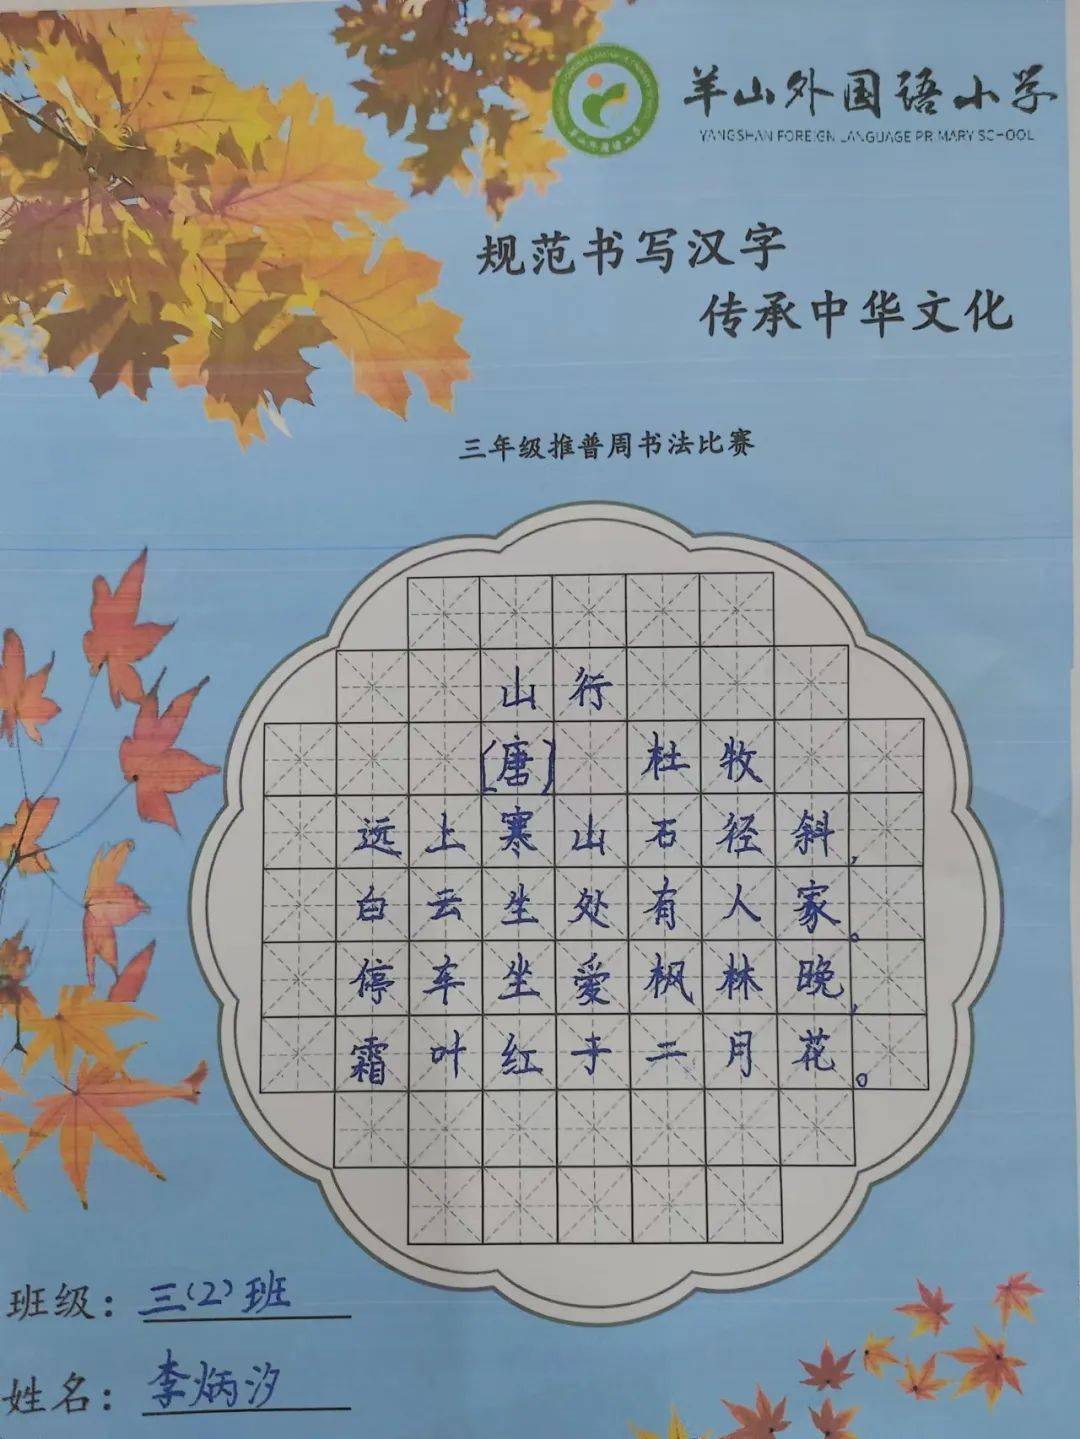 羊山外国语小学
YANGSHAN FOREIGN LANGUAGE PRIMARY SCHOOL
规范书写汉字
传承中华文化
三年级推普周书法比赛
山行
[唐] 杜牧
远上寒山石径斜,
白云生处有人家。
停车坐爱枫林晚,
霜叶红于二月花。
班级：三(2)班
姓名：李炳汐